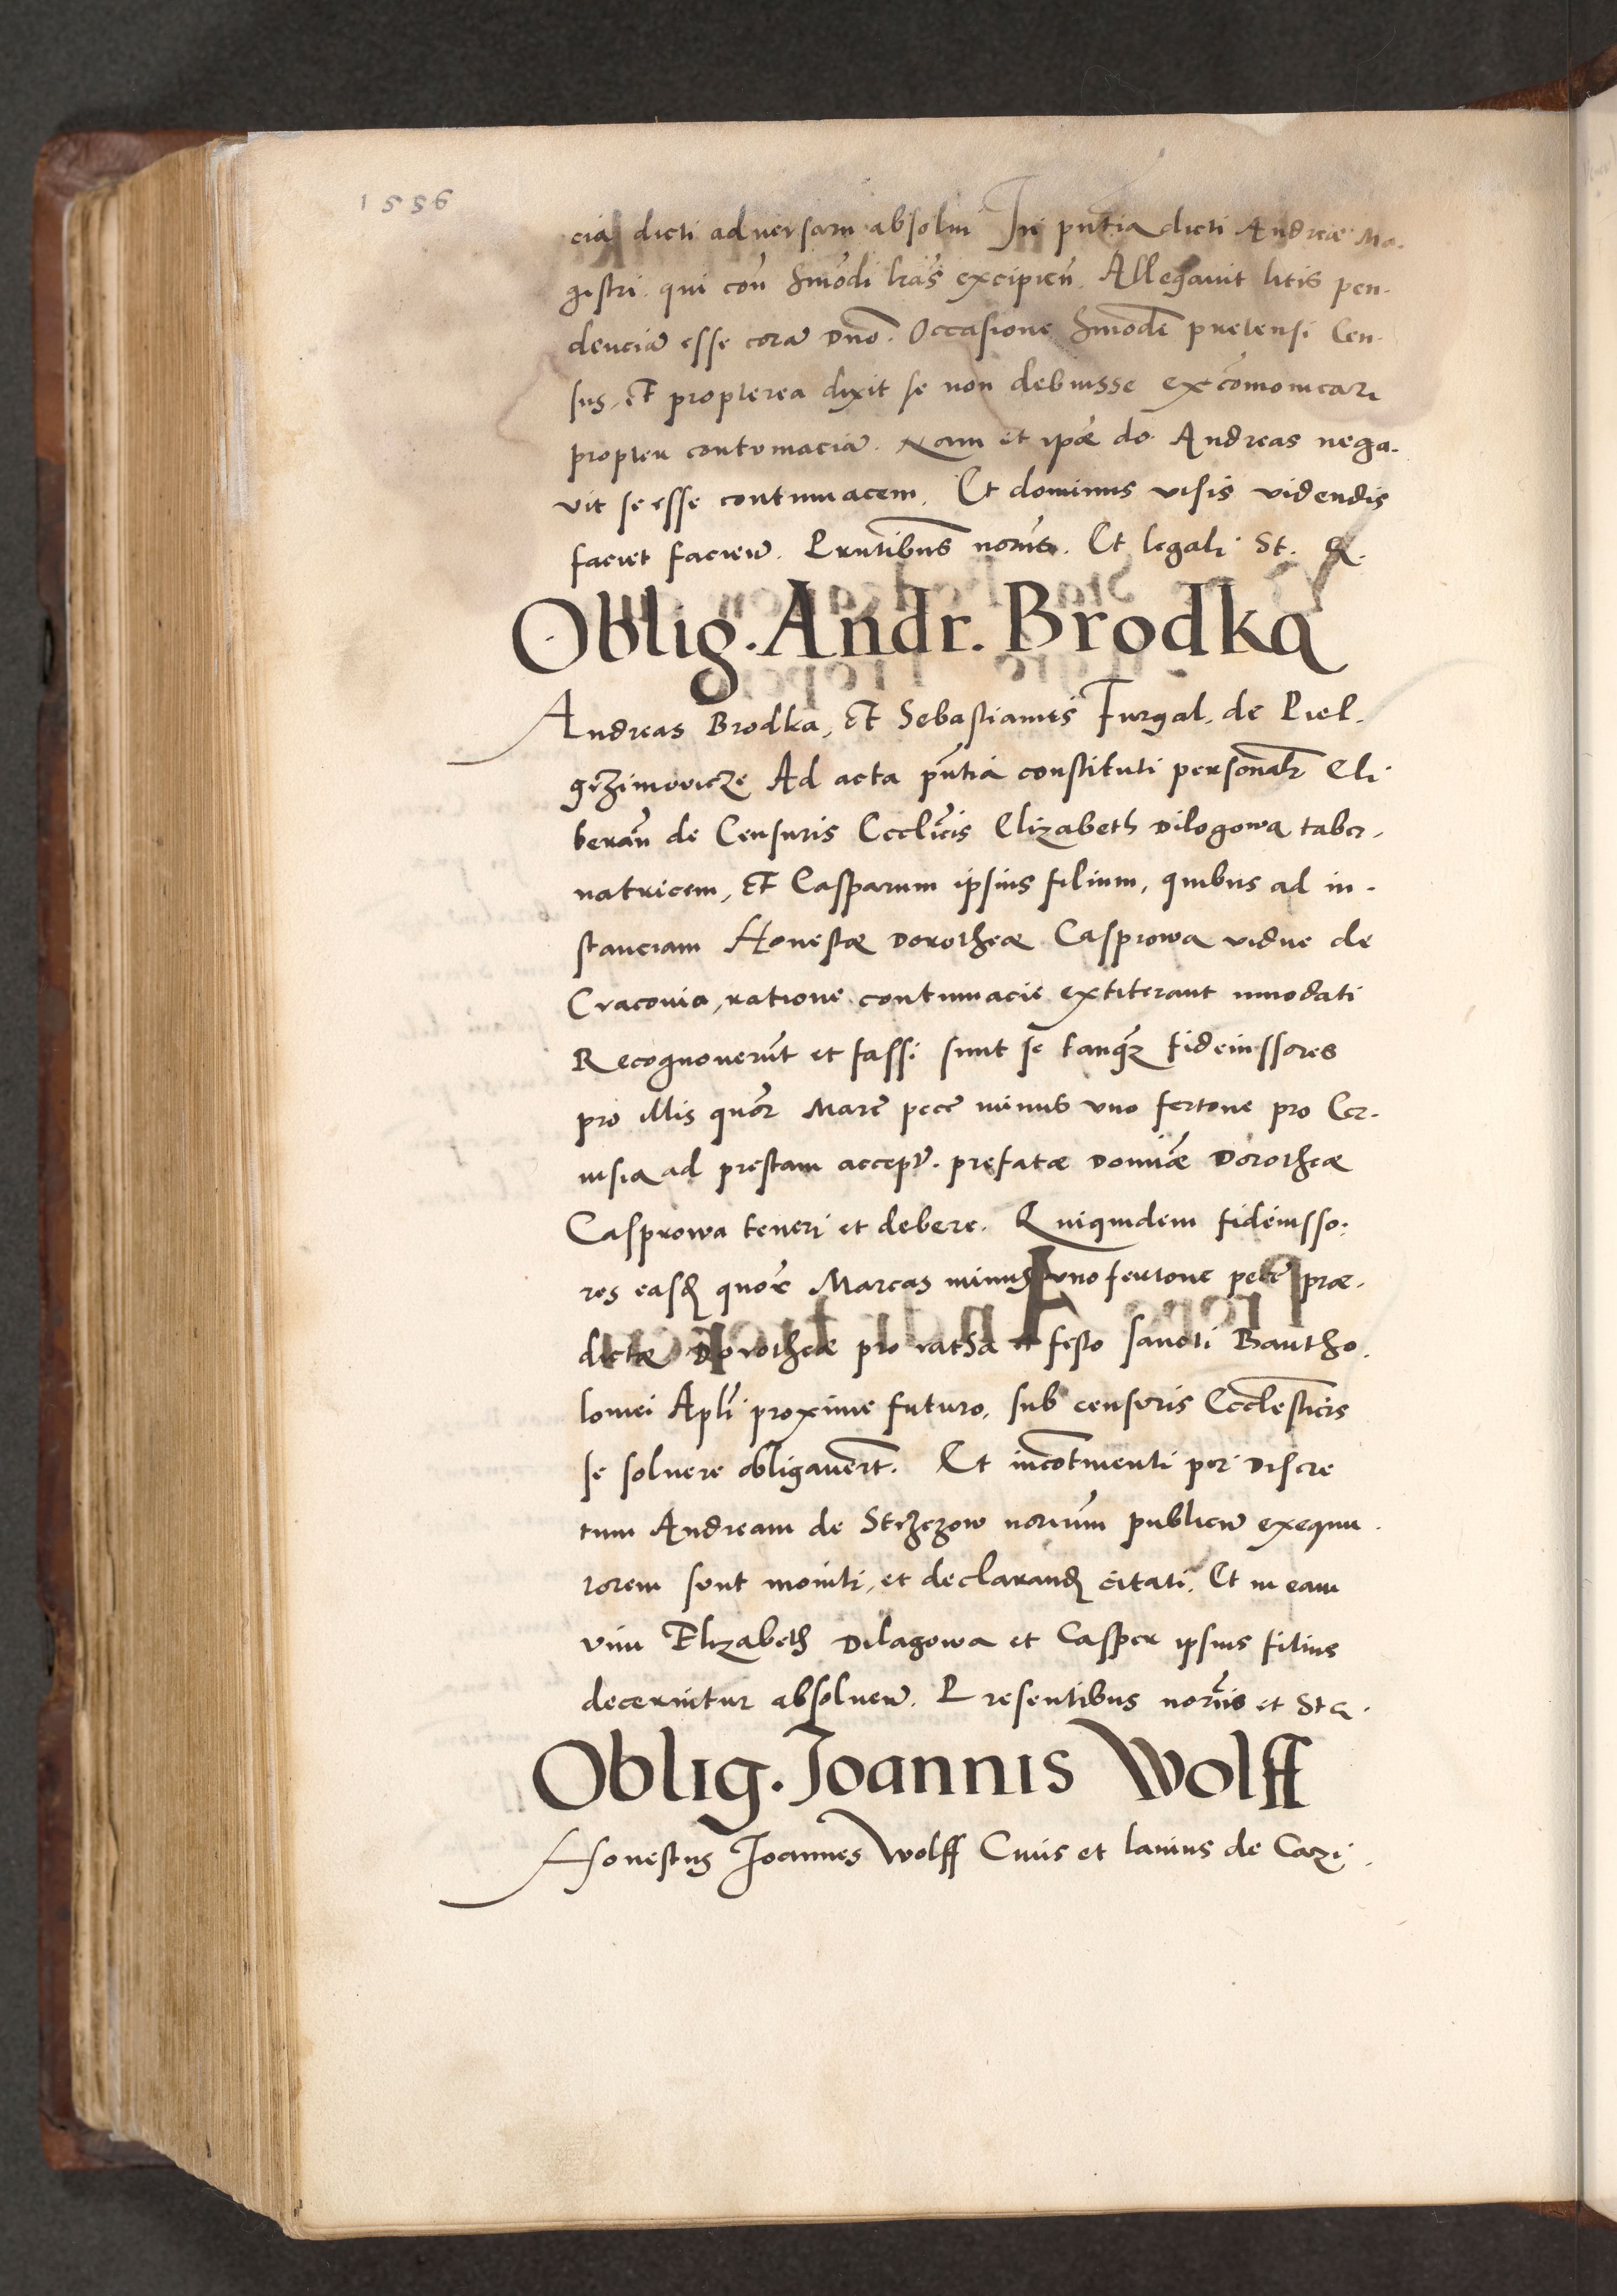 1556
cia dicti adversam absolui In pñtia dicti Andreæ Ma.
gistri. qui coñ hmõdi lras excipieñ. Allegauit litis pen.
denciã esse corã Dño. Occasione hmõdi pretensi Cen.
sus, Et propterea dixit se non debuisse excõmonicari
propter contumaciã. Nam et ipse do. Andreas nega.
vit se esse contumacem. Et dominus visis videndis
faciet facieñ. Pñtibus notrijs. Et legali. St. R.
Oblig. Andr. Brodka
Andreas Brodka, Et Sebastianus Furgal. de Piel.
grzimowicze Ad acta pñtia constituti personalr Eli
berañ de Censuris Ecclicis Elizabeth Dilogowa taber.
natricem, Et Casparum ipsius filium, quibus ad in.
stanciam Honestæ Dorotheæ Casprowa vidue de
Cracouia, ratione contumacie extiterant innodati
Recognouerũt et fassi sunt se tanqz fideiussores
pro illis quor Marc pecẽ minus vno fertone pro Cer.
uisia ad prestam accepť. prefatæ Dominæ Dorotheæ
Casprowa teneri et debere. Quiquidem fideiusso.
res easd quor Marcas minus vno fertone pecẽ præ.
dictæ Dorotheæ pro ratha festo sancti Bartho.
lomei Apli proxime futuro. sub censuris Ecclesticis
se soluere obligauert. Et incotinenti per Discre
tum Andream de Strzezow notrium publicũ exequu.
torem sunt moniti, et declarand citati. Et in eam
vim Elizabeth Dilagowa et Casper ipsius filius
decernitur absoluenď. Presentibus notrijs et St R.
Oblig. Joannis Wolff
Honestus Joannes Wolff Ciuis et lanius de Cazi.